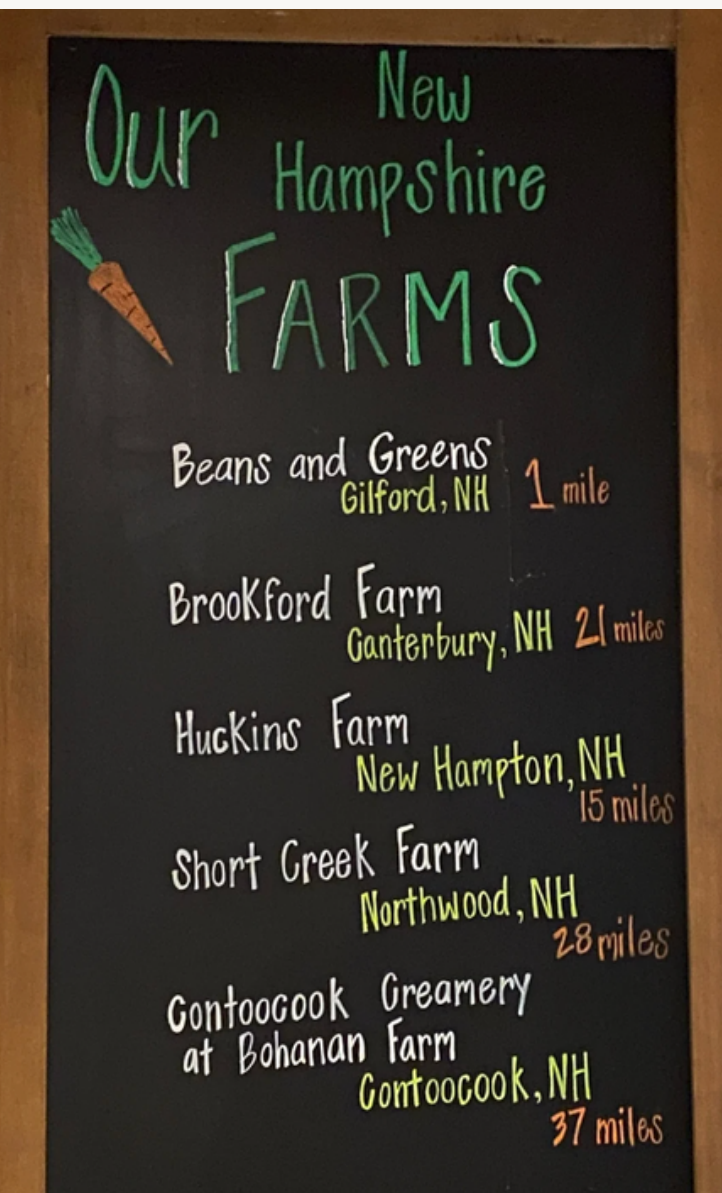 Our New
Hampshire
FARMS
Beans and Greens
Gilford, NH 1 mile
Brookford Farm
Canterbury, NH 21 miles
Huckins Farm
New Hampton, NH
15 miles
Short Creek Farm
Northwood, NH
28 miles
Contoocook Creamery
at Bohanan Farm
Contoocook, NH
37 miles